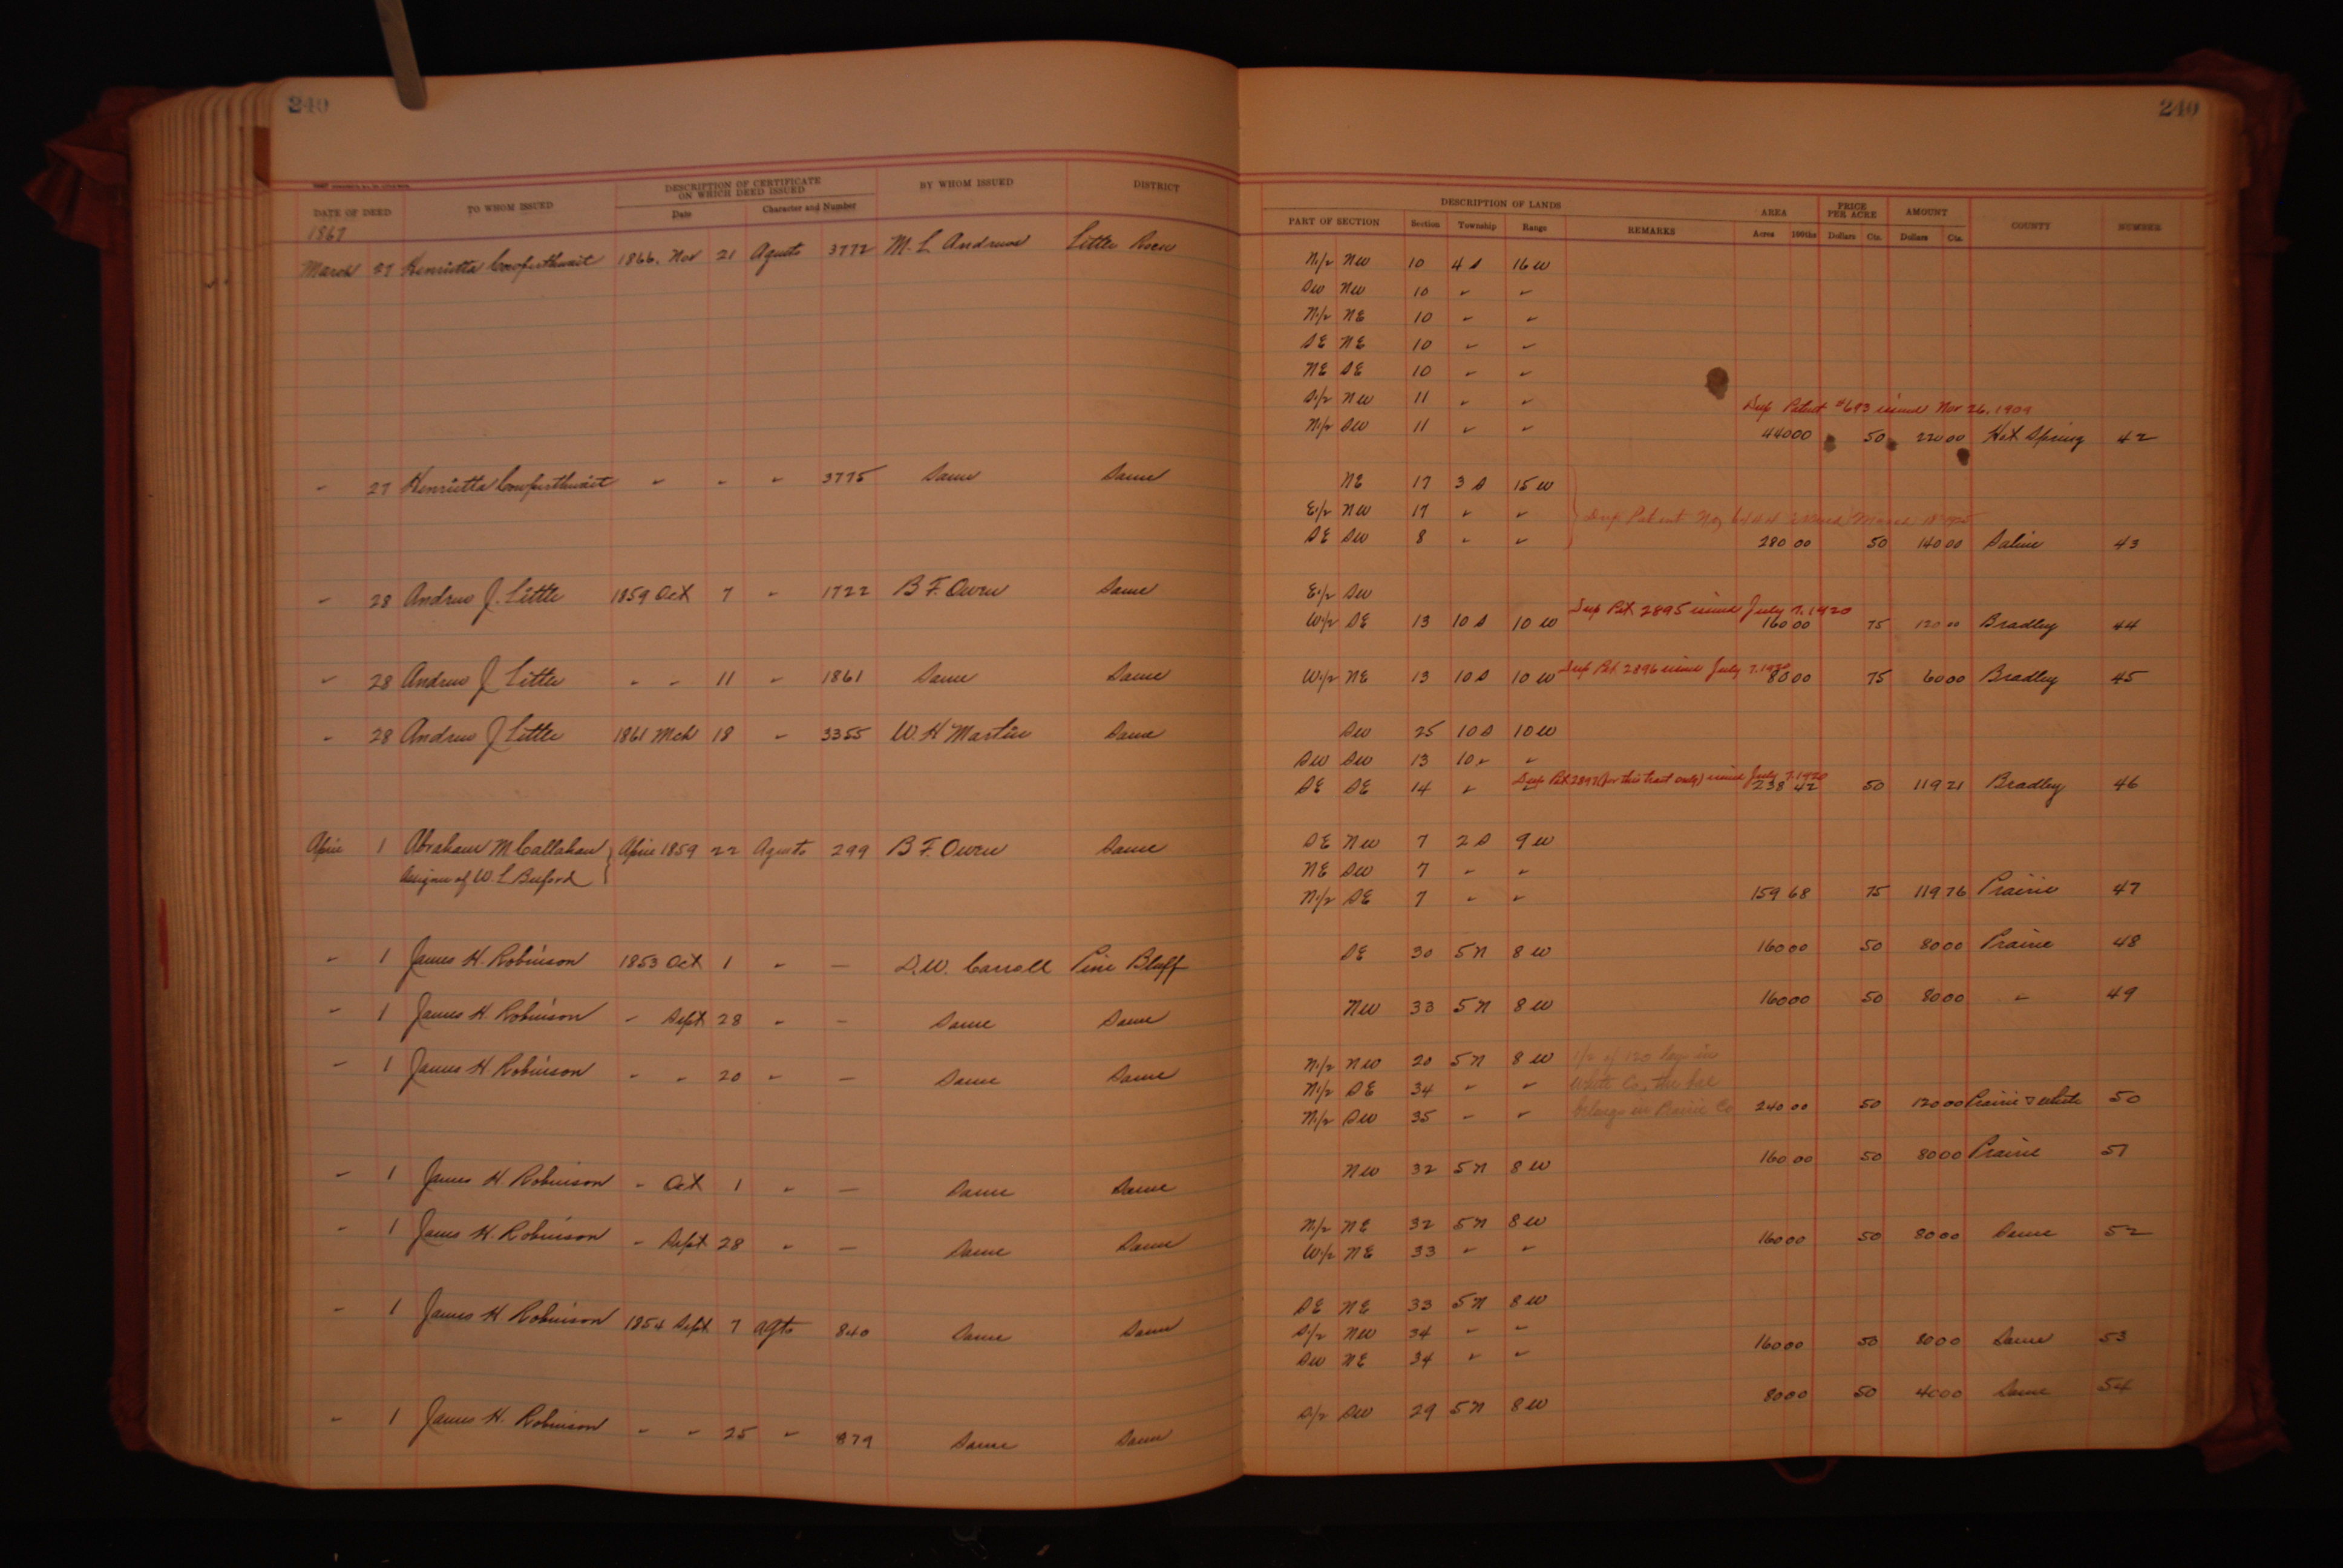 240
240
DATE OF DEED TO WHOM ISSUED DESCRIPTION OF CERTIFICATE ON WHICH DEED ISSUED BY WHOM ISSUED DISTRICT
Date Character and Number
DESCRIPTION OF LANDS AREA PRICE PER ACRE AMOUNT COUNTY NUMBER
PART OF SECTION Section Township Range REMARKS Acres 100ths Dollars Cts. Dollars Cts.
1867
March 27 Henrietta Cowperthwait 1866. Nov 21 Agusto 3772 M. L Andrews Little Rock N1/2 NW 10 4 S 16 W
SW NW 10 " "
N1/2 NE 10 " "
SE NE 10 " "
NE SE 10 " "
S1/2 NW 11 " "
Dup Patent #693 issued Nov 26, 1909
N1/2 SW 11 " " 440 00 50 220 00 Hot Spring 42
" 27 Henrietta Cowperthwait " " " 3775 Same Same NE 17 3 S 15 W
E1/2 NW 17 " " Dup. Patent No, issued March
SE SW 8 " " 280 00 50 140 00 Saline 43
" 28 Andrew J. Little 1859 Oct 7 " 1722 B F. Owen Same E1/2 SW
Dup Pat 2895 issued July 7. 1920
W1/2 SE 13 10 S 10 W 160 00 75 120 00 Bradley 44
" 28 Andrew J Little " " 11 " 1861 Same Same W1/2 NE 13 10 S 10 W Dup Pat. 2896 issued July 7. 1920 80 00 75 60 00 Bradley 45
" 28 Andrew J Little 1861 Mch 18 " 3355 W. H Martin Same SW 25 10 S 10 W
SW SW 13 10 " "
Dup Pat 2897 (for this tract only) issued July 7. 1920
SE SE 14 " " 238 42 50 119 21 Bradley 46
April 1 Abraham M Callahan April 1859 22 Agusto 299 B F. Owen Same SE NW 7 2 S 9 W
Assignee of W. L Buford NE SW 7 " "
N1/2 SE 7 " " 159 68 75 119 76 Prairie 47
" 1 James H. Robinson 1853 Oct 1 " — S. W. Carroll Pine Bluff SE 30 5 N 8 W 160 00 50 80 00 Prairie 48
" 1 James H. Robinson " Sept 28 " — Same Same NW 33 5 N 8 W 160 00 50 80 00 " 49
" 1 James H Robinson " " 20 " — Same Same N1/2 NW 20 5 N 8 W 1/2 of 120 lays in
N1/2 SE 34 " " White Co., the bal
N1/2 SW 35 " " belongs in Prairie Co 240 00 50 120 00 Prairie & White 50
" 1 James H Robinson " Oct 1 " — Same Same NW 32 5 N 8 W 160 00 50 80 00 Prairie 51
" 1 James H. Robinson " Sept 28 " — Same Same N1/2 NE 32 5 N 8 W
W1/2 NE 33 " " 160 00 50 80 00 Same 52
" 1 James H Robinson 1854 Sept 7 Agto 840 Same Same SE NE 33 5 N 8 W
S1/2 NW 34 " "
SW NE 34 " " 160 00 50 80 00 Same 53
" 1 James H. Robinson " " 25 " 879 Same Same S1/2 SW 29 5 N 8 W 80 00 50 40 00 Same 54